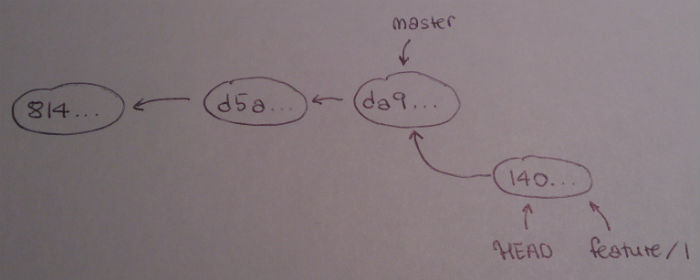 master
814... d5a... da9...
140...
HEAD feature/1